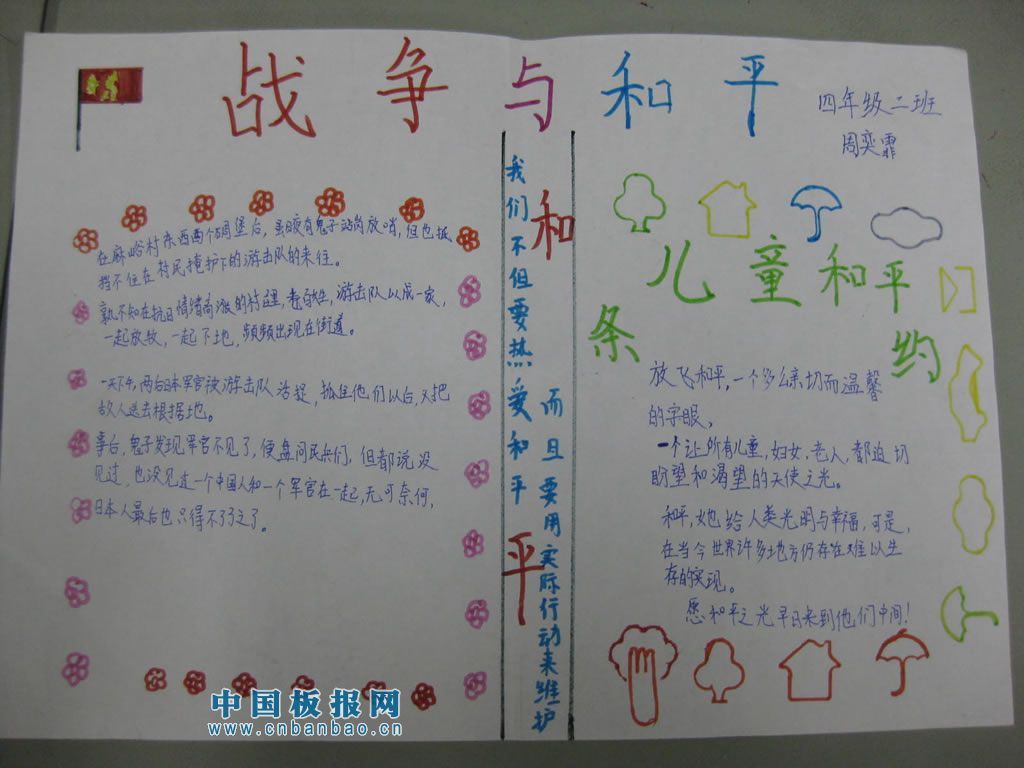 战争与和平
四年级二班
周奕霏
在麻峪村东西两个碉堡后，虽硬有鬼子站岗放哨，但也抵
挡不住在村民掩护下的游击队的来往。
孰不知在抗日情绪高涨的村里，老百姓，游击队以成一家，
一起放牧，一起下地，频频出现在街道。
一天下午，两后日本军官被游击队活捉，抓住他们以后，又把
敌人送去根据地。
事后，鬼子发现军官不见了，便盘问民兵们，但都说没
见过，也没见过一个中国人和一个军官在一起，无可奈何，
日本人最后也只得不了了之了。
和平
我们不但要热爱和平
而且要用实际行动来维护
儿童和平
条约
放飞和平，一个多么亲切而温馨
的字眼，
一个让所有儿童，妇女，老人，都迫切
盼望和渴望的天使之光。
和平，她给人类光明与幸福，可是，
在当今世界许多地方仍存在难以生
存的实现。
愿和平之光早日来到他们中间！
中国板报网
www.cnbanbao.cn